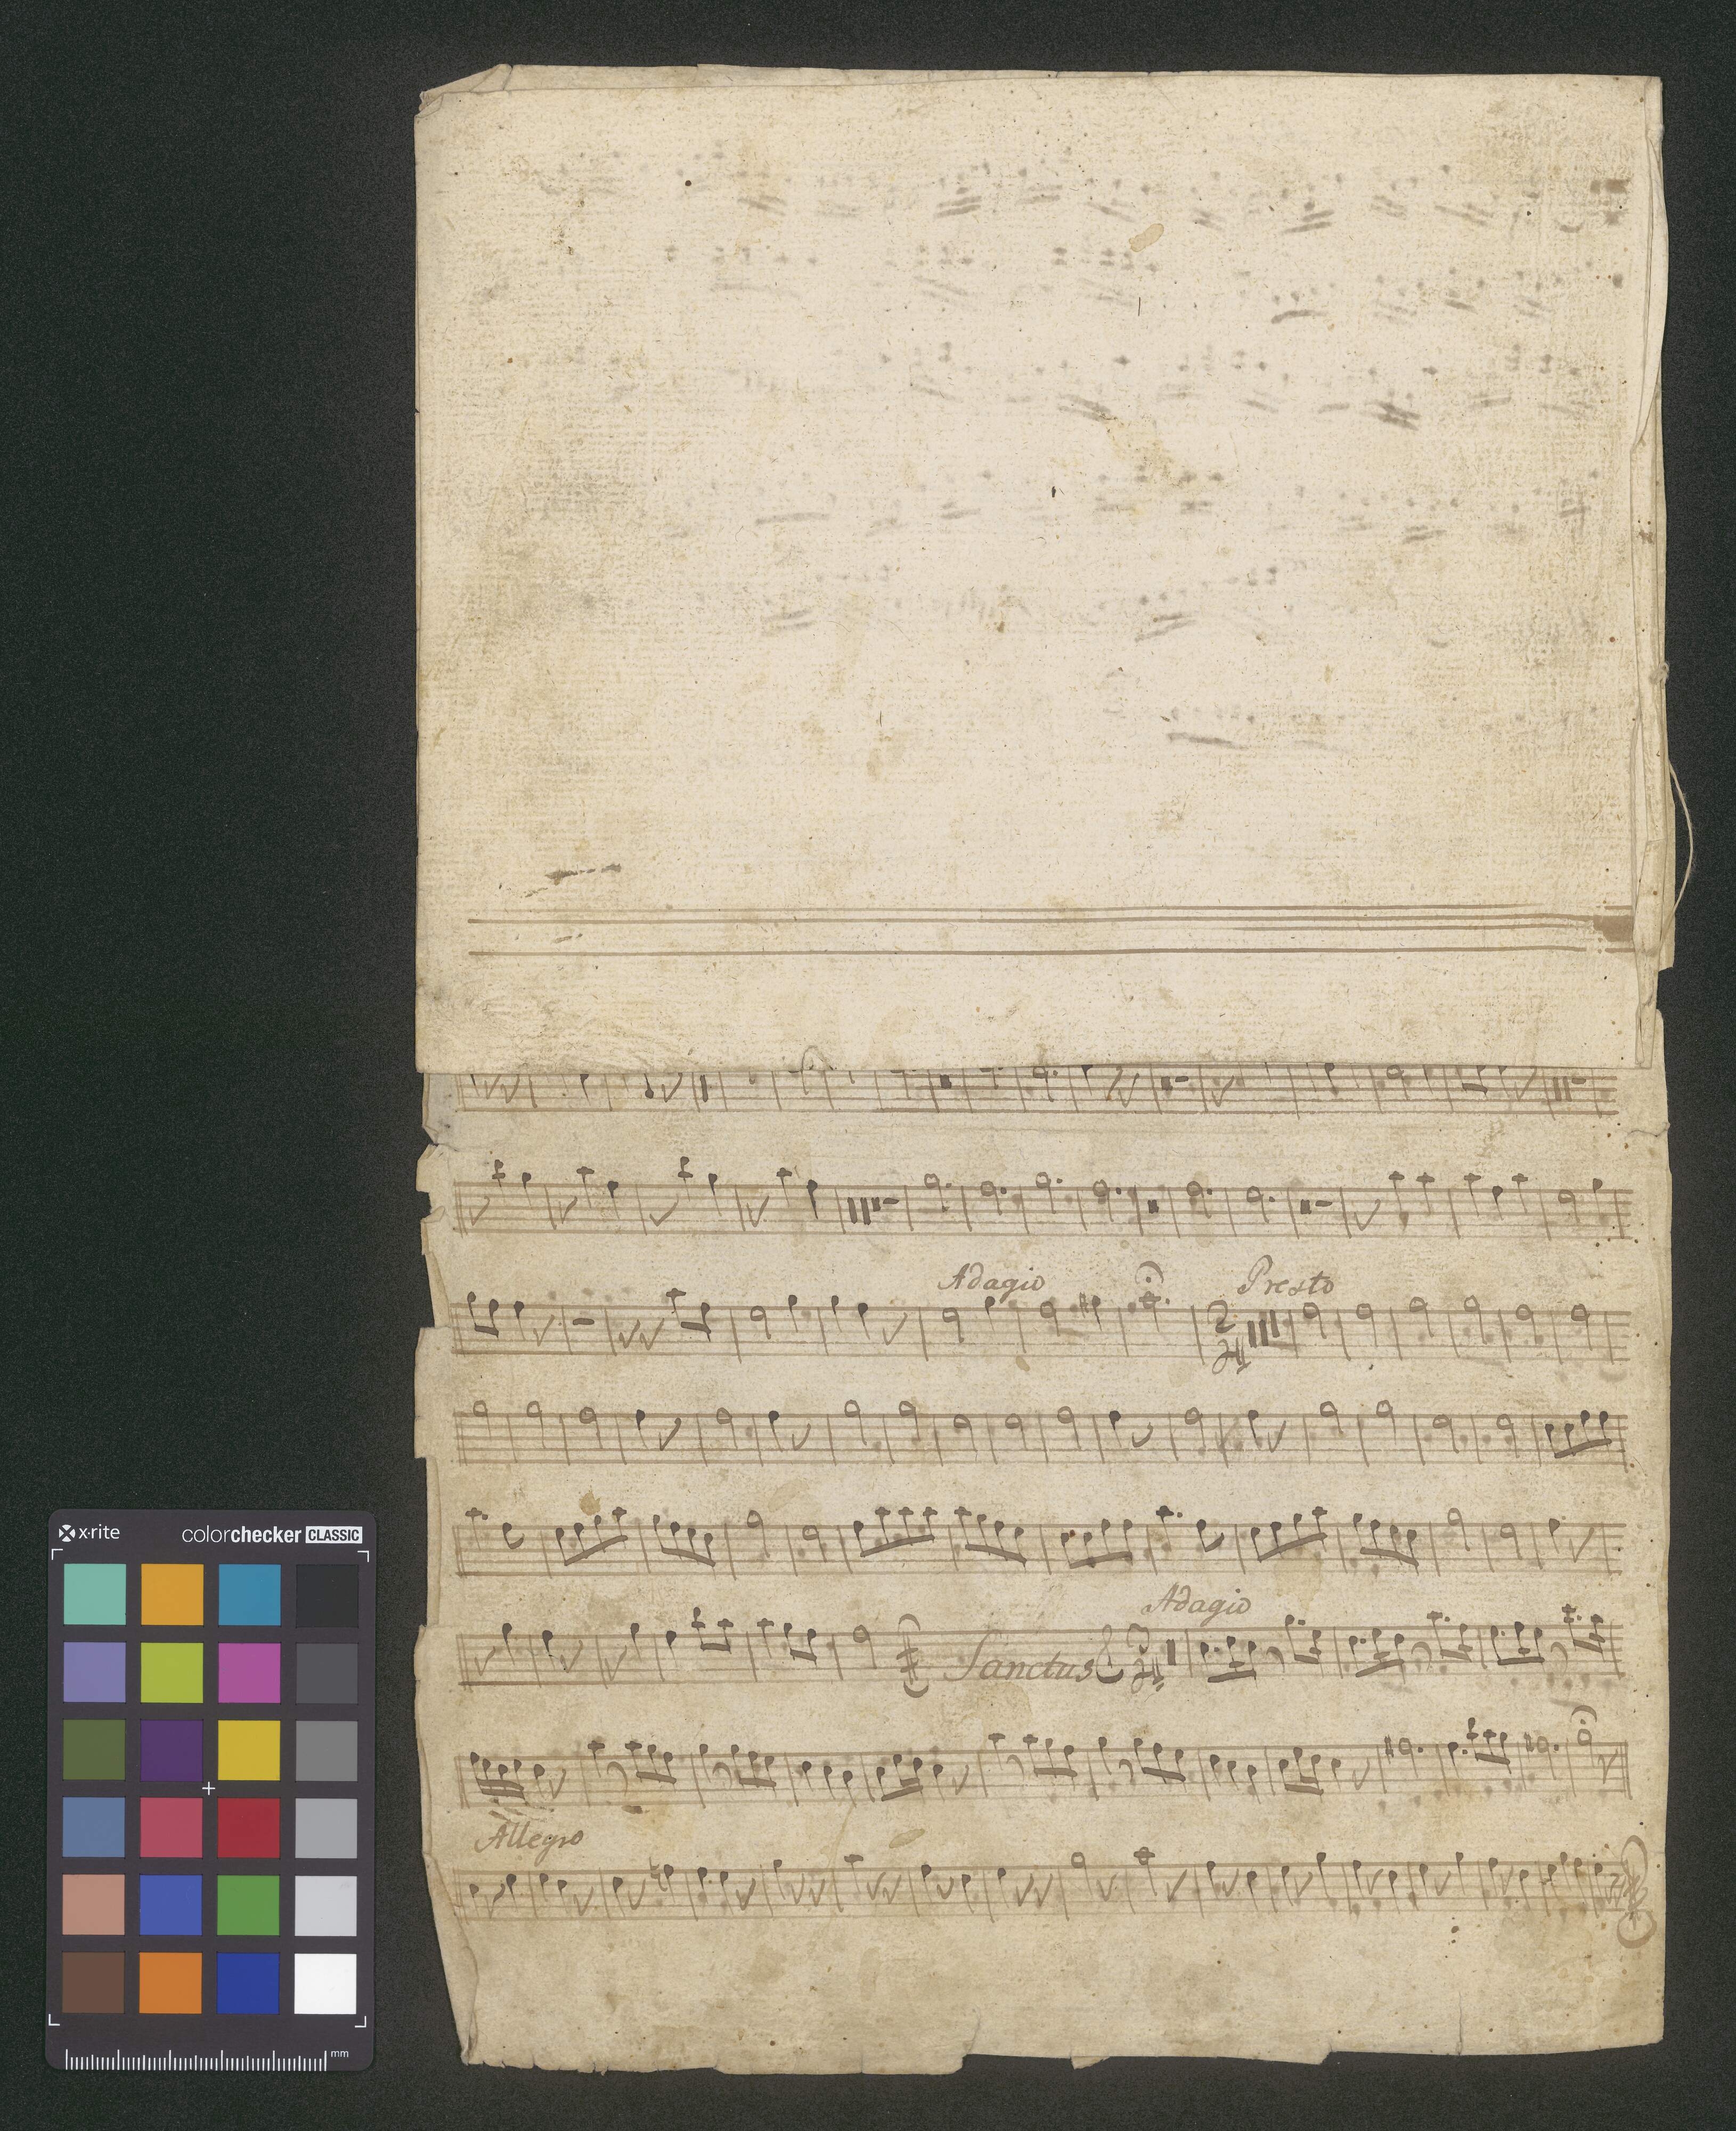 Adagio Presto
Adagio
Sanctus
Allegro
x-rite colorchecker CLASSIC
mm